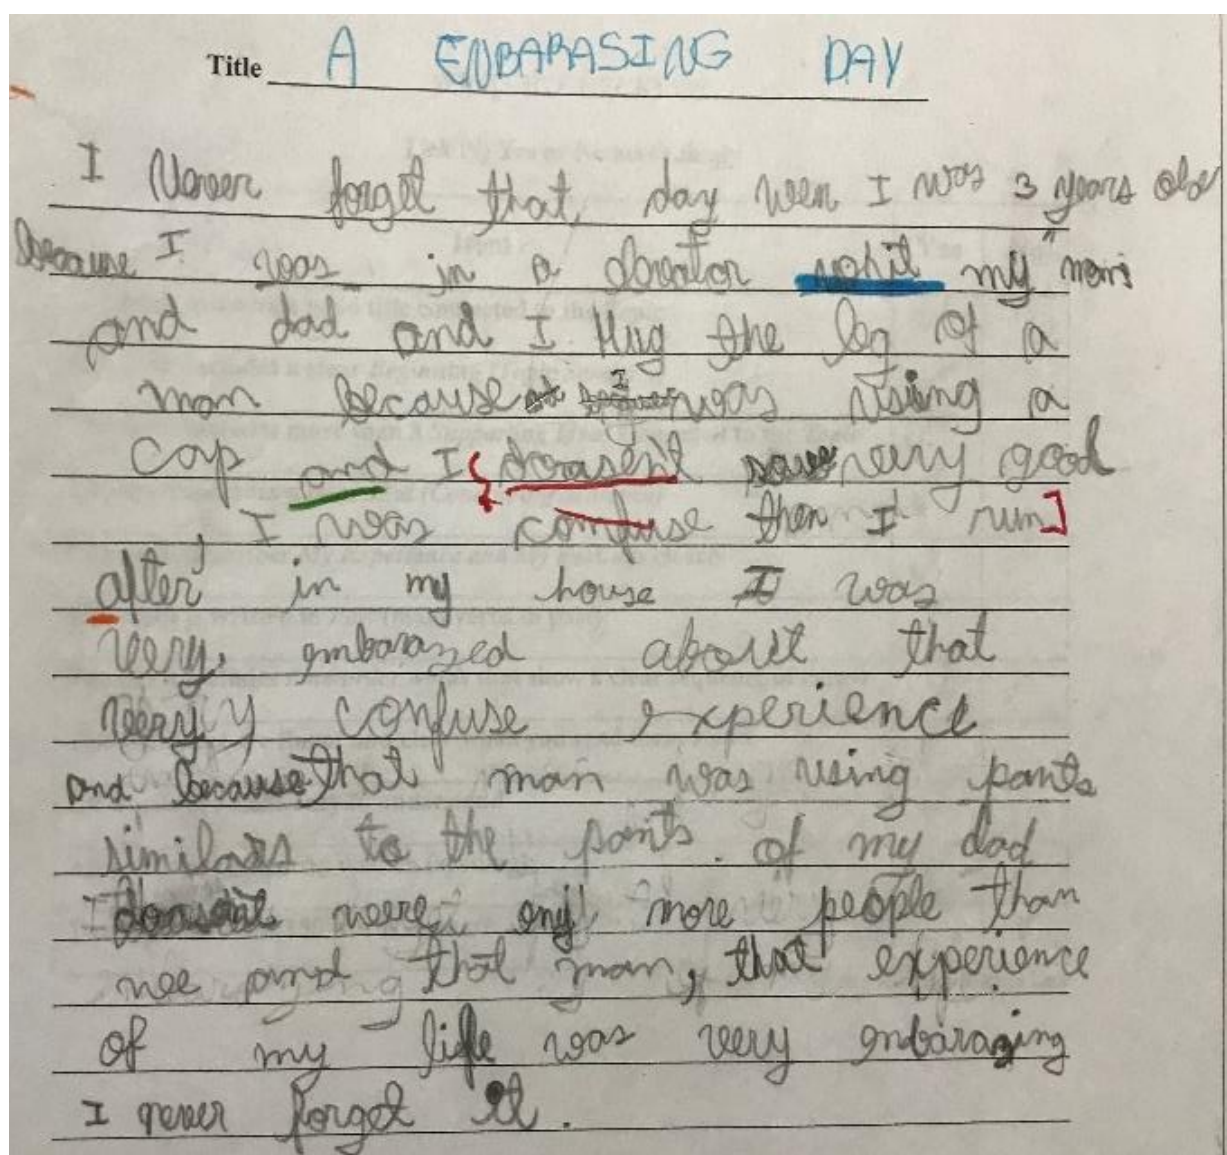 Title A ENBARASING DAY
I Never forget that day wen I was 3 years older
because I was in a elevator whit my mom
and dad and I Hug the leg of a
man because I was using a
cap and I doasent saw very good
, I was confuse then I run]
after in my house I was
very, embarazed about that
very confuse experience
and because that man was using pants
similars to the pants of my dad
I weere eny more people than
wee and that man, that experience
of my life was very enbarazing
I never forget it.